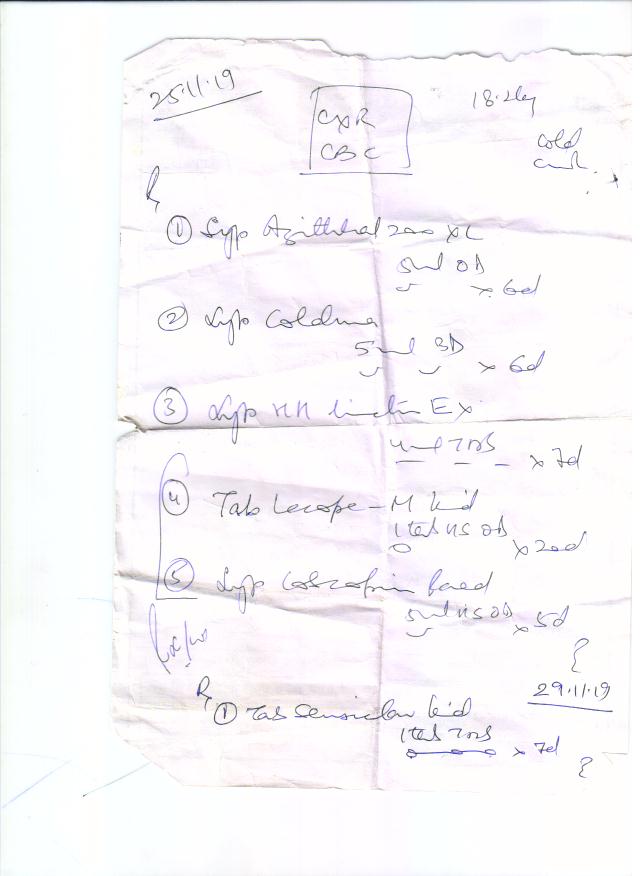 25.11.19
CXR
CBC
18.2kg
cold
Rx
① Syp Azithral 200 XL
5ml OD
x 6d
② Syp Coldma
5ml BD
x 6d
③ Syp Ex
4ml TDS
x 7d
④ Tab Lecope-M kid
1 tab HS OD
x 20d
⑤ Syp
5ml HS OD
x 5d
29.11.19
Rx
① Tab kid
1 tab TDS
x 7d